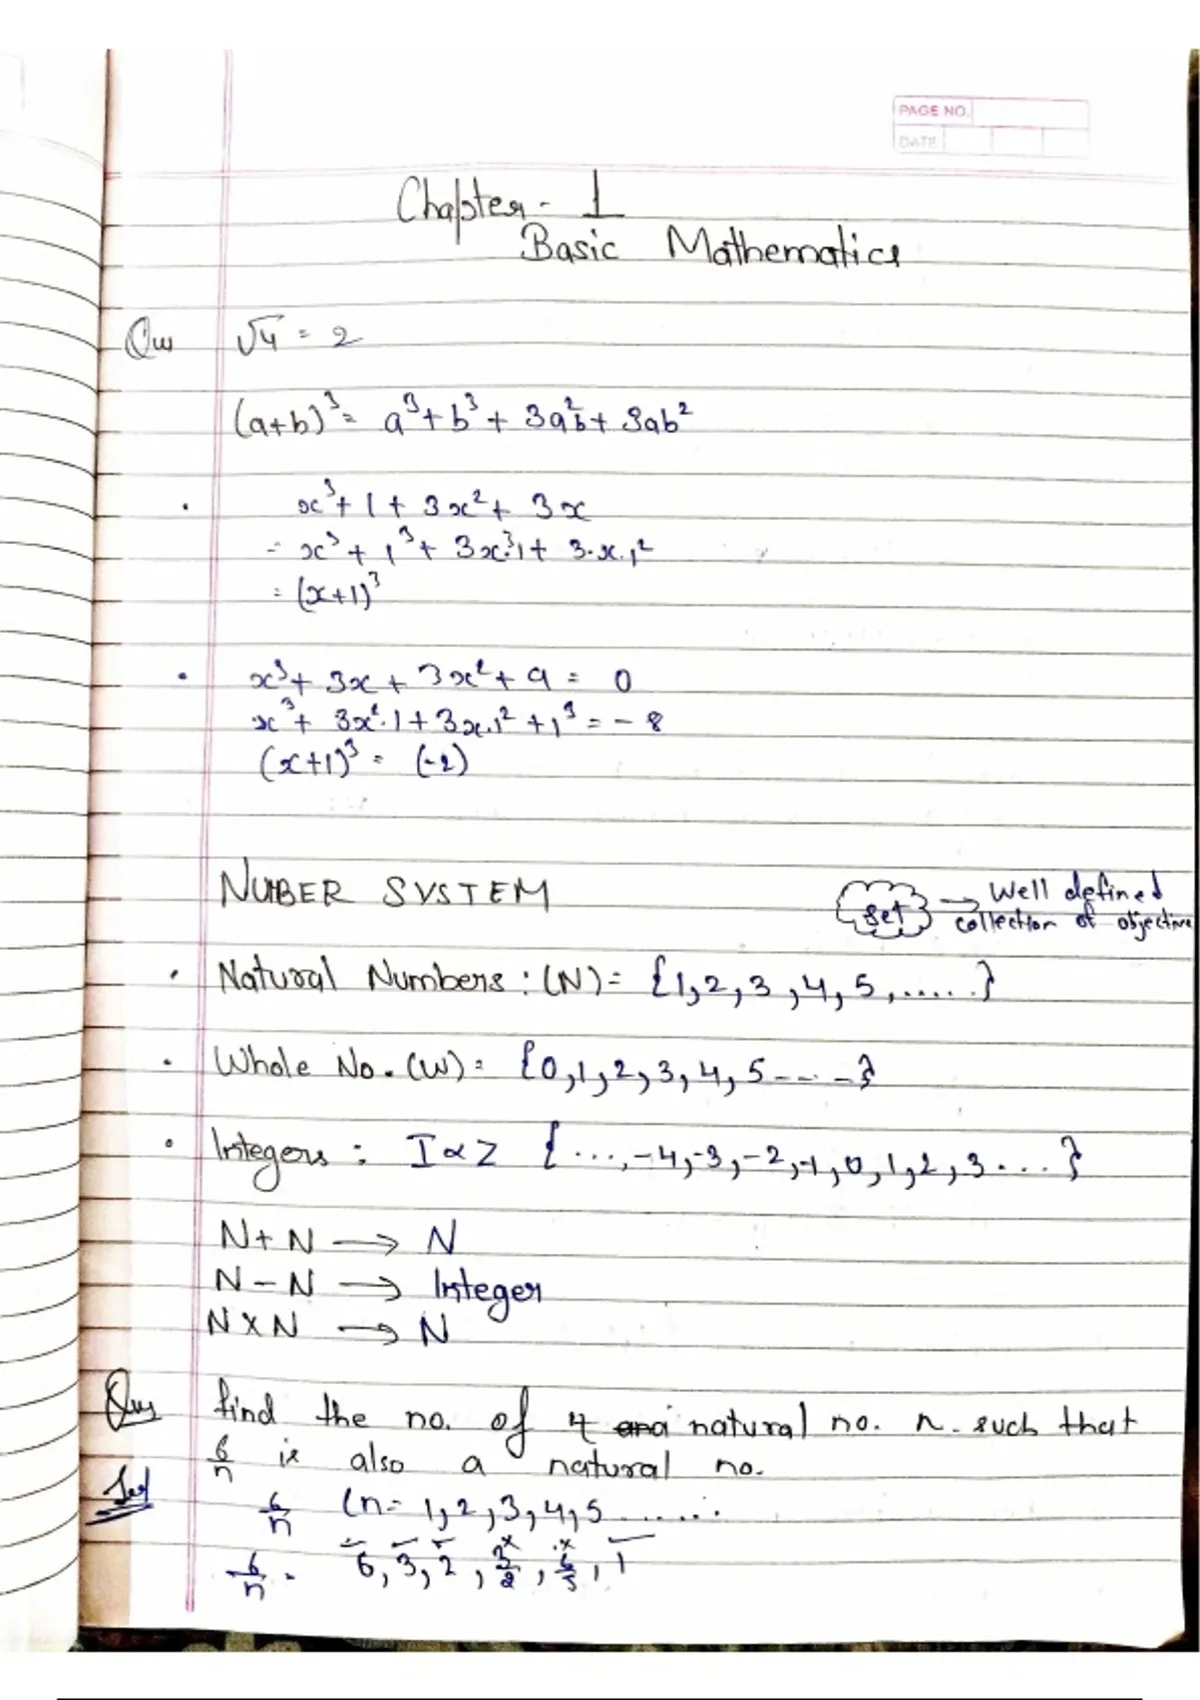 PAGE NO.
DATE
Chapter - 1
Basic Mathematics
Ques √4 = 2
(a+b)³ = a³ + b³ + 3a²b + 3ab²
• x³ + 1 + 3x² + 3x
= x³ + 1³ + 3x²·1 + 3·x·1²
= (x+1)³
• x³ + 3x + 3x² + 9 = 0
x³ + 3x²·1 + 3x·1² + 1³ = -8
(x+1)³ = (-2)
NUMBER SYSTEM
Set → Well defined
collection of objective
• Natural Numbers : (N) = {1,2,3,4,5,......}
• Whole No. (W) = {0,1,2,3,4,5-----}
• Integers : I or Z {...,-4,-3,-2,-1,0,1,2,3...}
N + N → N
N - N → Integer
N × N → N
Ques find the no. of natural no. n. such that
6/n is also a natural no.
Sol 6/n (n = 1,2,3,4,5.......
6/n = 6, 3, 2, 3/2, 6/5, 1